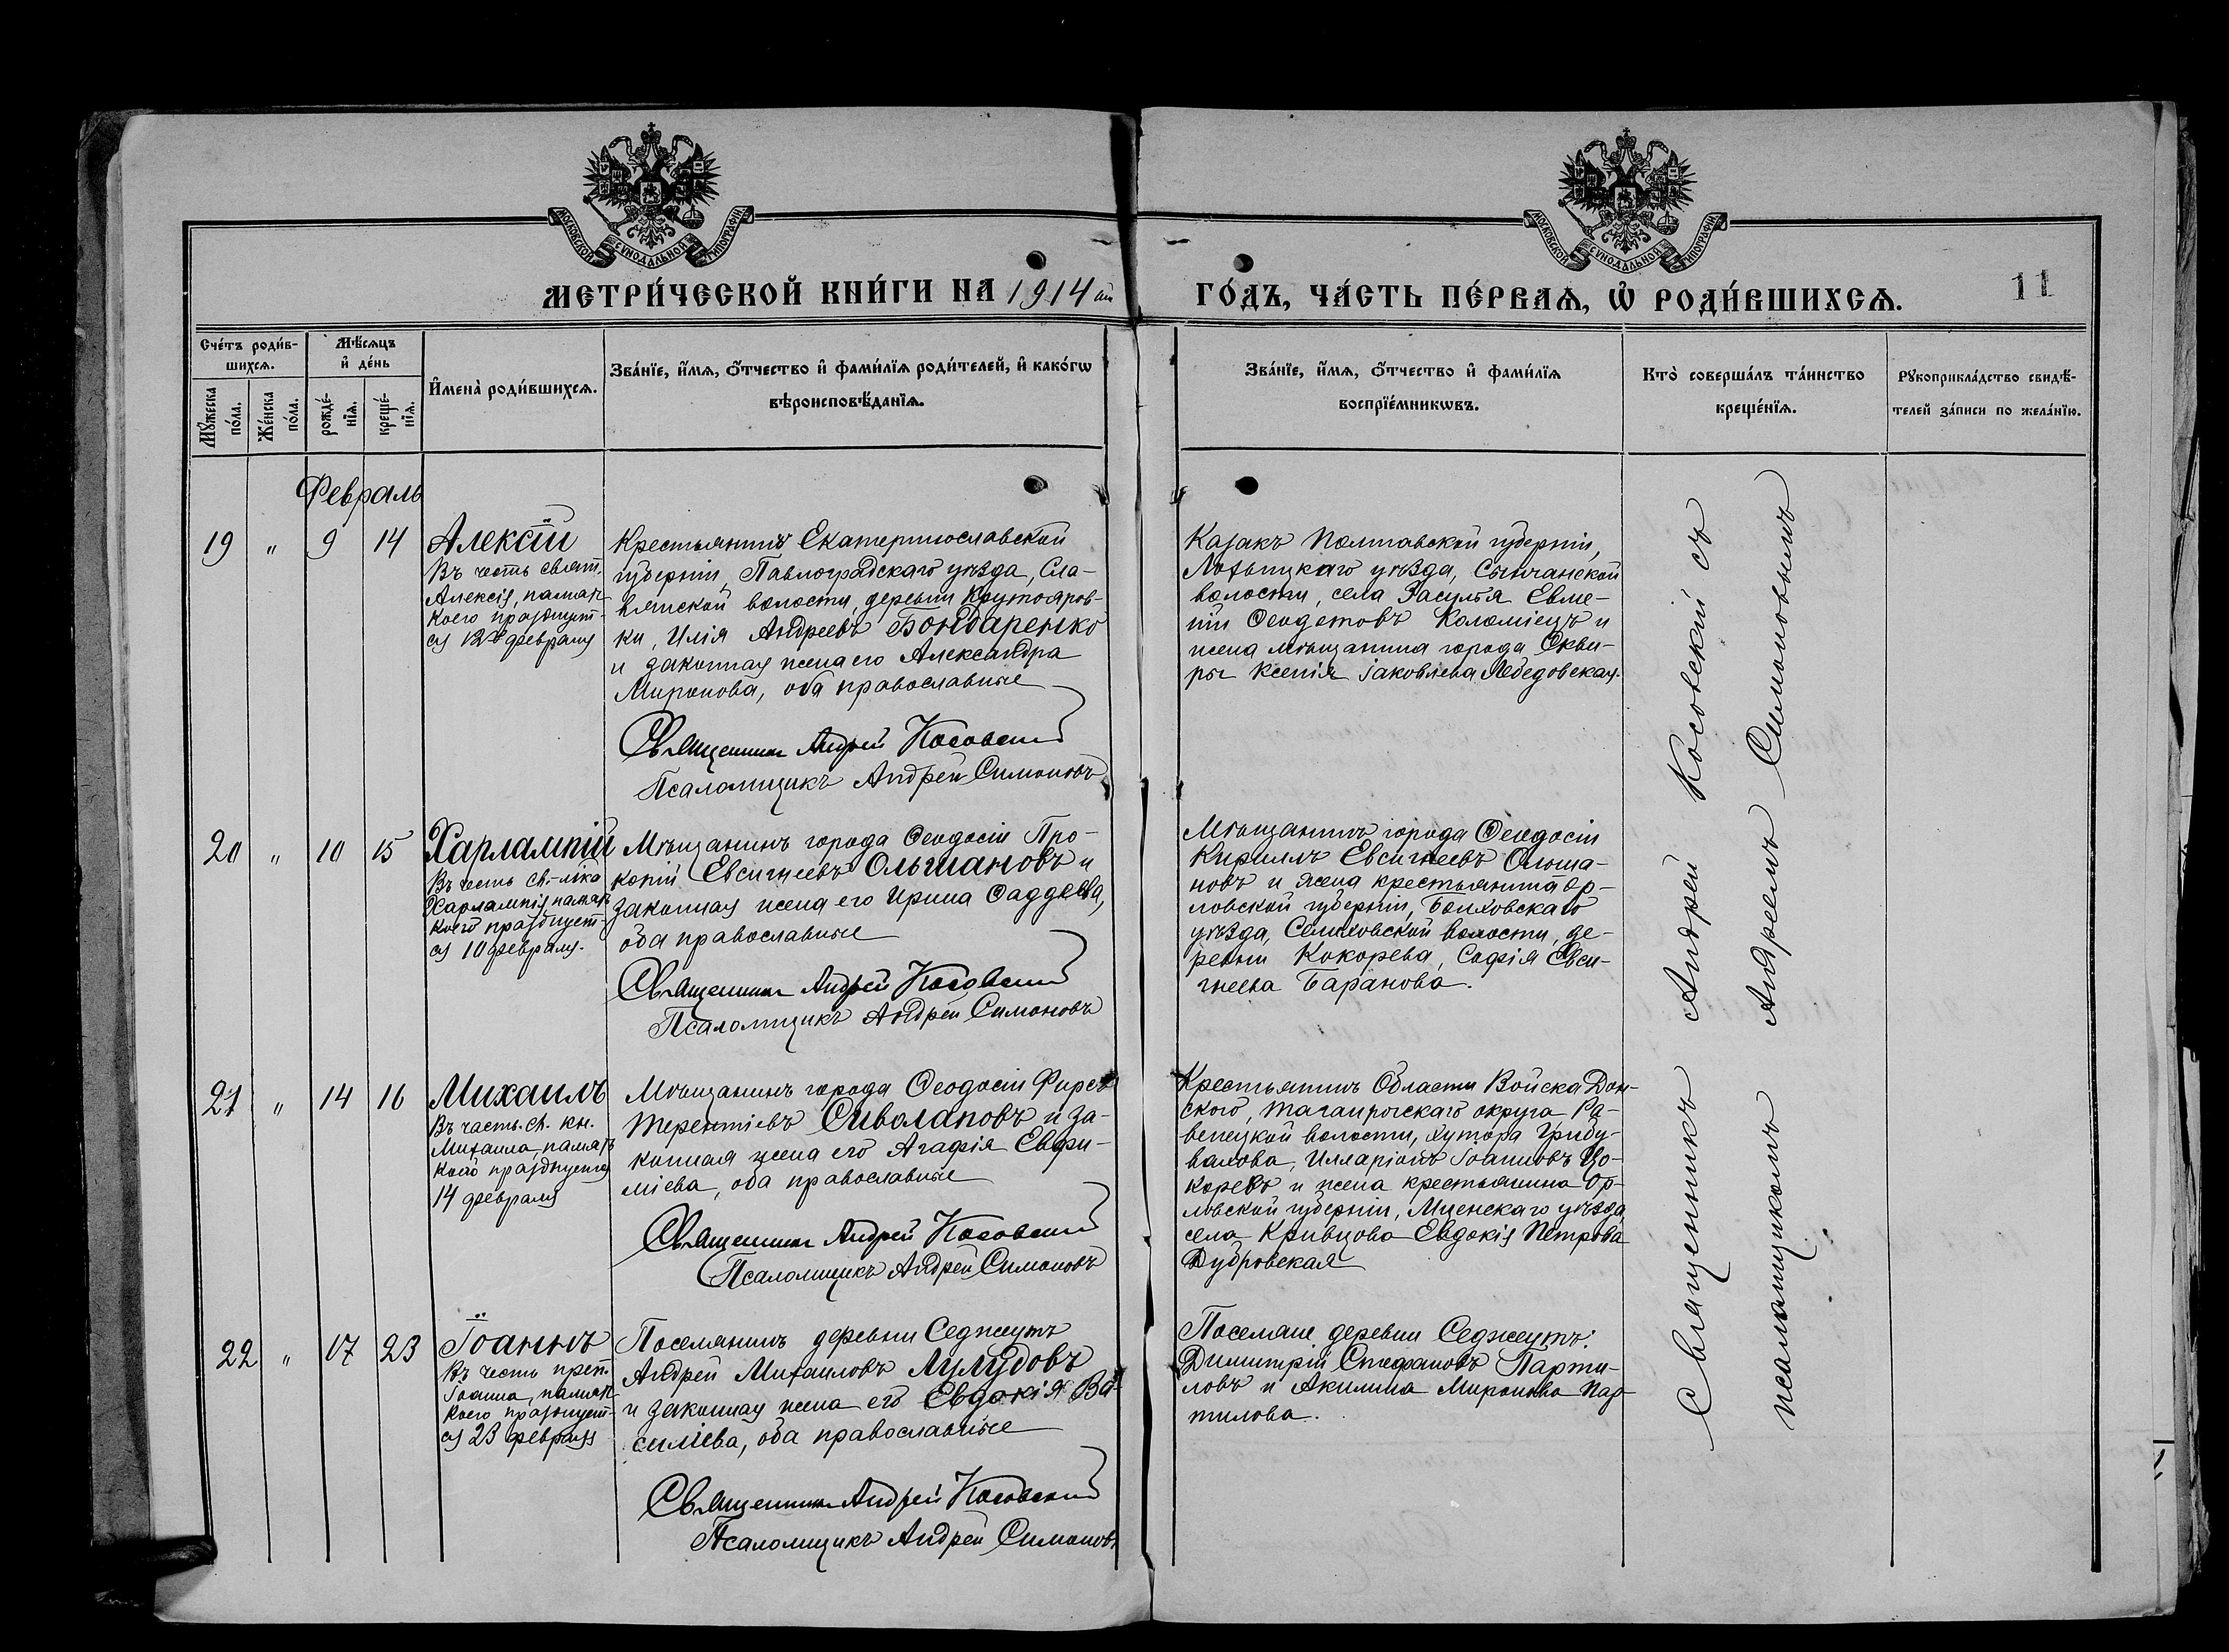 МОСКОВСКОЙ СѴНОДАЛЬНОЙ ТИПОГРАФІИ
МОСКОВСКОЙ СѴНОДАЛЬНОЙ ТИПОГРАФІИ
МЕТРИ́ЧЕСКОЙ КНИ́ГИ НА 1914 ый
ГО́ДЪ, ЧА́СТЬ ПЕ́РВАѦ, Ѽ РОДИ́ВШИХСѦ.
11
Сче́тъ роди́в-
шихсѧ.
Мѣ́сѧцъ
и҆ де́нь
Мꙋ́жеска
по́ла.
Же́нска
по́ла.
рожде́-
нїѧ.
креще́-
нїѧ.
И҆мена̀ роди́вшихсѧ.
Зва́нїе, и҆́мѧ, ѻ҆́тчество и҆ фами́лїѧ роди́телей, и҆ како́гѡ
вѣроисповѣ́данїѧ.
Зва́нїе, и҆́мѧ, ѻ҆́тчество и҆ фами́лїѧ
воспрїе́мникѡвъ.
Кто̀ соверша́лъ та́инство
креще́нїѧ.
Рꙋкоприкла́дство свидѣ́-
телей за́писи по жела́нїю.
Февраль
19 " 9 14
Алексій
Въ честь свят.
Алексія, память
коего празднует-
ся 12 февраля
Крестьянинъ Екатеринославской
губерніи, Павлоградскаго уѣзда, Сла-
вянской волости, деревни Крутояров-
ки, Илія Андреевъ Бондаренко
и законная жена его Александра
Миронова, оба православные
Священникъ Андрей Косовскій
Псаломщикъ Андрей Симоновъ
Казакъ Полтавской губерніи,
Лохвицкаго уѣзда, Сенчанской
волости, села Засулья Евме-
ній Ѳеодотовъ Коломіецъ и
жена мѣщанина города Скви-
ры Ксенія Іаковлева Лебедовская.
20 " 10 15
Харлампій
Въ честь св.-мка
Харлампія, память
коего празднует-
ся 10 февраля.
Мѣщанинъ города Ѳеодосіи Про-
копій Евсигнеевъ Ольшановъ и
законная жена его Ирина Фаддеева,
оба православные
Священникъ Андрей Косовскій
Псаломщикъ Андрей Симоновъ
Мѣщанинъ города Ѳеодосіи
Кириллъ Евсигнеевъ Ольша-
новъ и жена крестьянина Ор-
ловской губерніи, Болховскаго
уѣзда, Селиховской волости, де-
ревни Кокорева, Софія Евси-
гнеева Баранова.
21 " 14 16
Михаилъ
Въ честь св. кн.
Михаила, память
коего празднуется
14 февраля
Мѣщанинъ города Ѳеодосіи Фирсъ
Терентіевъ Сиволаповъ и за-
конная жена его Агафія Евфи-
міева, оба православные
Священникъ Андрей Косовскій
Псаломщикъ Андрей Симоновъ
Крестьянинъ Области Войска Дон-
ского, Таганрогскаго округа Ра-
венецкой волости, хутора Грибу-
валова, Илларіонъ Іоанновъ Цо-
коревъ и жена крестьянина Ор-
ловской губерніи, Мценскаго уѣзда,
села Кривцова Евдокія Петрова
Дубровская
22 " 17 23
Іоаннъ
Въ честь преп.
Іоанна, память
коего празднует-
ся 23 февраля
Поселянинъ деревни Седжеутъ
Андрей Михаиловъ Лулудовъ
и законная жена его Евдокія Ва-
силіева, оба православные
Священникъ Андрей Косовскій
Псаломщикъ Андрей Симоновъ
Поселяне деревни Седжеутъ:
Димитрій Стефановъ Парти-
ловъ и Акилина Миронова Пар-
тилова.
Священникъ Андрей Косовскій съ
псаломщикомъ Андреемъ Симоновымъ